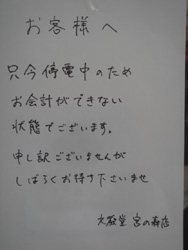 お客様へ
只今停電中のため
お会計ができない
状態でございます。
申し訳ございませんが
しばらくお待ち下さいませ
大阪堂 宮の森店